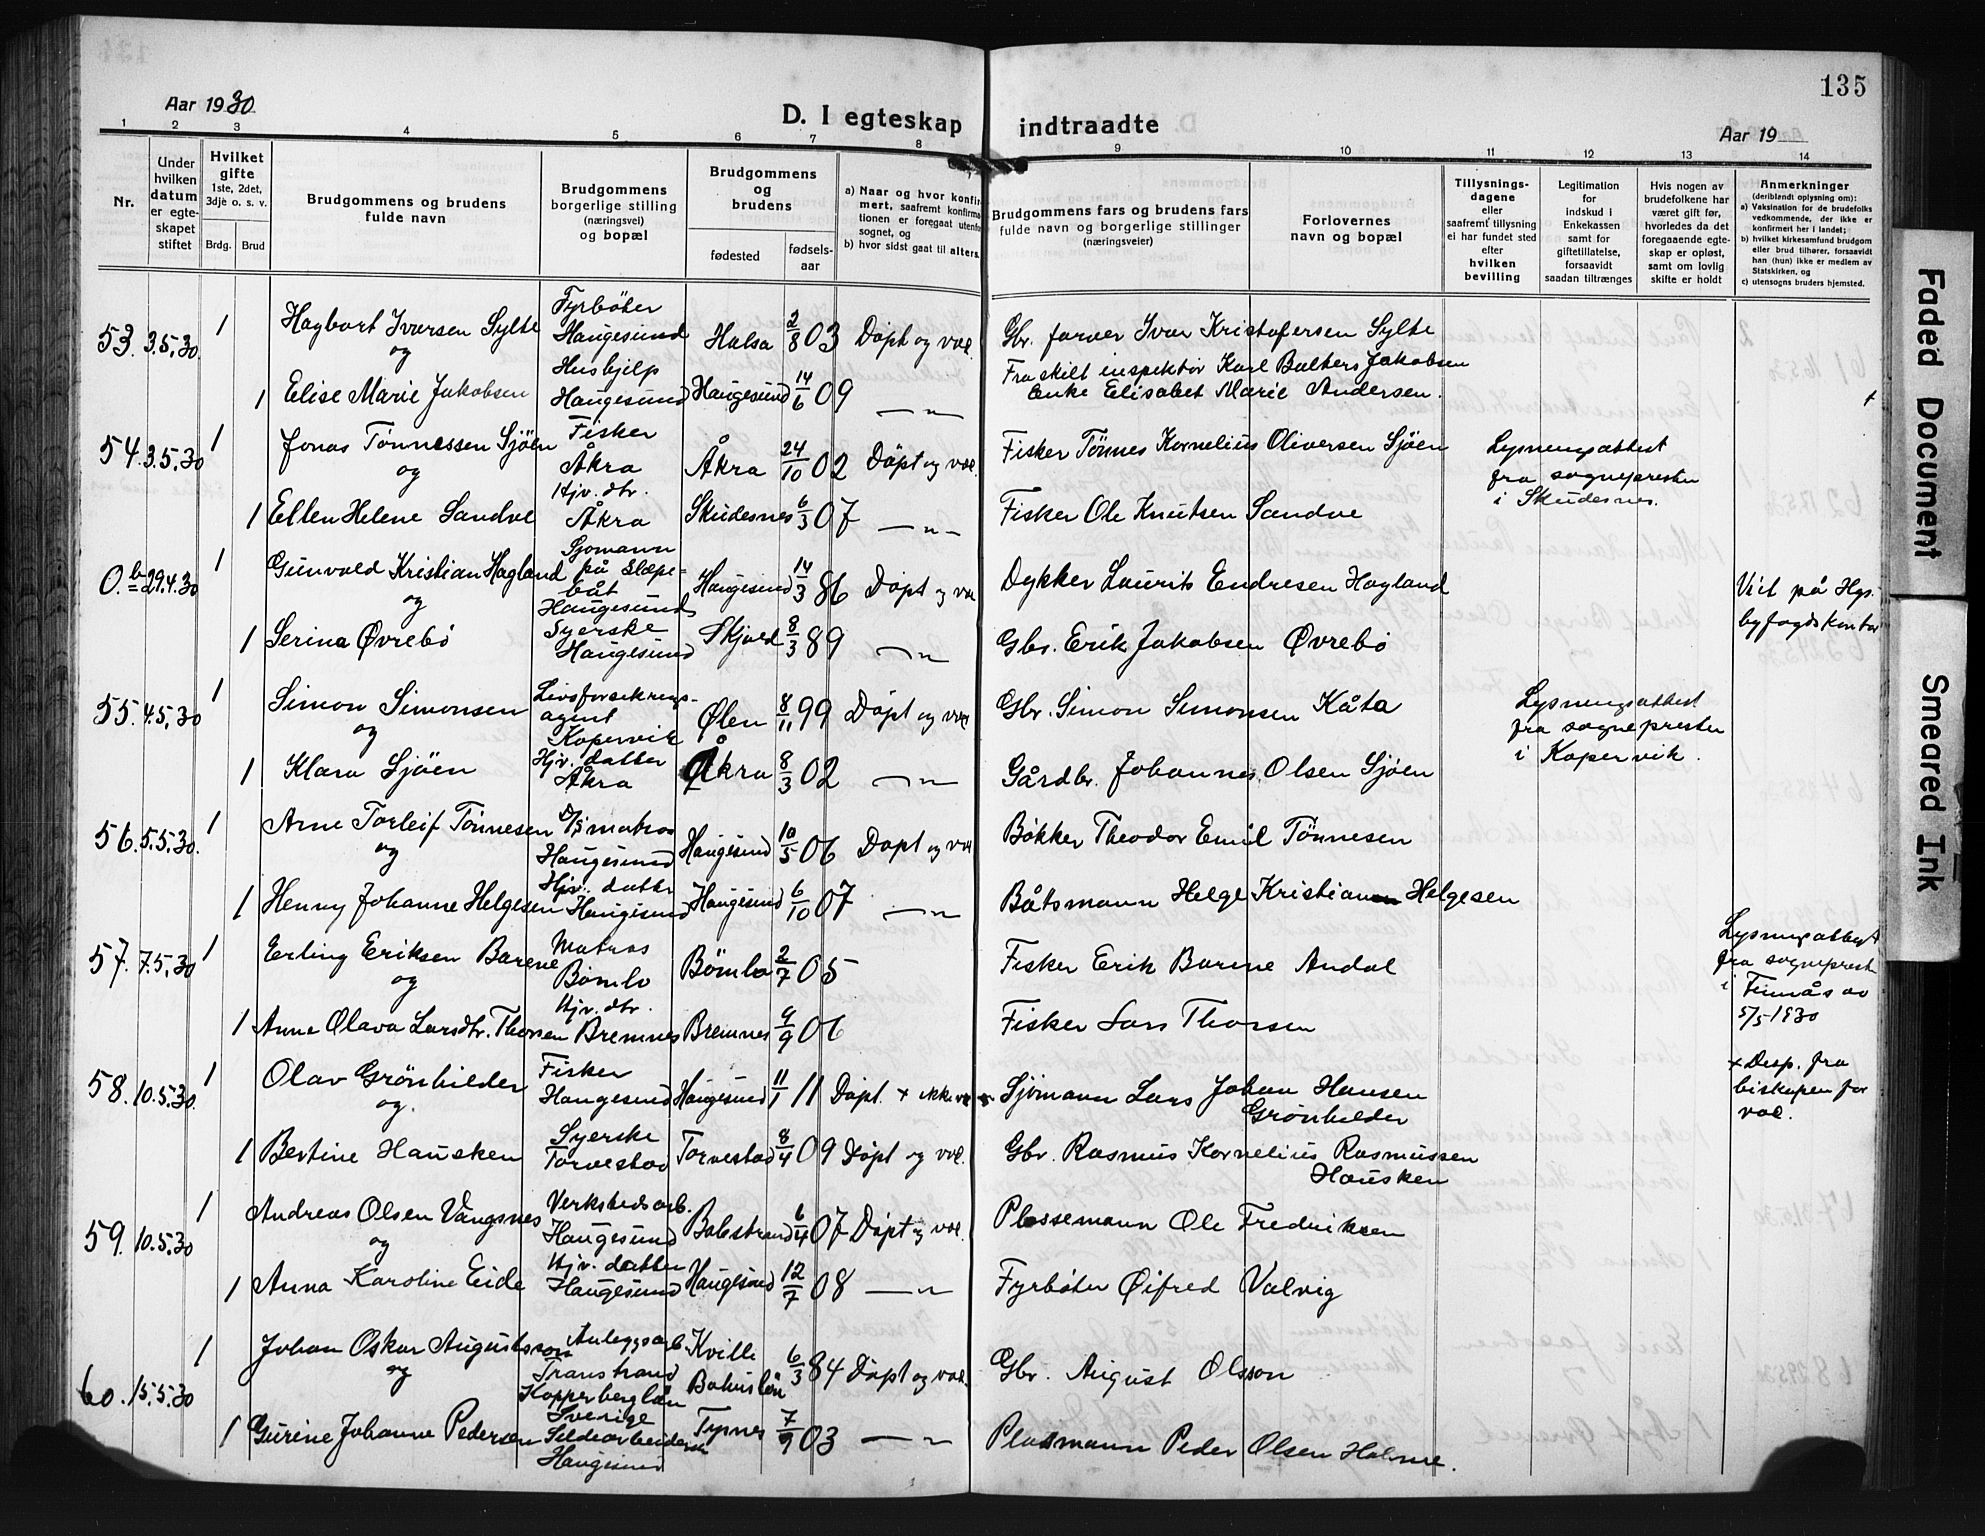 135
Aar 1930
D. I egteskap indtraadte
Aar 19
1 2 3 4 5 6 7 8 9 10 11 12 13 14
Nr.
Under hvilken datum er egteskapet stiftet
Hvilket gifte
1ste, 2det, 3dje o. s. v.
Brdg. Brud
Brudgommens og brudens fulde navn
Brudgommens borgerlige stilling (næringsvei) og bopæl
Brudgommens og brudens
fødested fødsels-aar
a) Naar og hvor konfirmert, saafremt konfirmationen er foregaat utenfor sognet, og
b) hvor sidst gaat til alters.
Brudgommens fars og brudens fars fulde navn og borgerlige stillinger (næringsveier)
Forlovernes navn og bopæl
Tillysnings-dagene eller saafremt tillysning ei har fundet sted efter hvilken bevilling
Legitimation for indskud i Enkekassen samt for giftetillatelse, forsaavidt saadan tiltrænges
Hvis nogen av brudefolkene har været gift før, hvorledes da det foregaaende egteskap er opløst, samt om lovlig skifte er holdt
Anmerkninger (deriblandt oplysning om):
a) Vaksination for de brudefolks vedkommende, der ikke er konfirmert her i landet;
b) hvilket kirkesamfund brudgom eller brud tilhører, forsaavidt han (hun) ikke er medlem av Statskirken, og
c) utensogns bruders hjemsted.
53. 3.5.30. 1 Hagbart Iversen Sylte Fyrbøter Haugesund Halsa 2/8 03 Døpt og vac. Gbr. farver Ivar Kristofersen Sylte
og
1 Elise Marie Jakobsen Hushjelp Haugesund Haugesund 14/6 09 —"— Fraskilt inspektør Karl Balters Jakobsen
Enke Elisabet Marie Andersen.
54. 3.5.30 1 Jonas Tønnessen Sjöen Fisker Åkra Åkra 24/10 02 Døpt og vac. Fisker Tönnes Kornelius Oliversen Sjöen Lysningsattest fra sognepresten i Skudesnes.
og
1 Ellen Helene Sandve Hjv. dtr. Åkra Skudesnes 6/3 07 —"— Fisker Ole Knutsen Sandve
0. b 29.4.30 1 Gunvald Kristian Hagland Sjomann på slæpebåt Haugesund Haugesund 14/3 86 Døpt og vac Dykker Laurits Endresen Hagland Viet på Hgs. byfogdskontor
og
1 Serina Øvrebö Syerske Haugesund Skjold 8/3 89 —"— Gbr. Erik Jakobsen Øvrebö
55. 4.5.30 1 Simon Simonsen Livsforsikrings-agent Kopervik Ølen 8/11 99 Døpt og vac Gbr. Simon Simonsen Kåta Lysningsattest fra sognepresten i Kopervik.
og
1 Klara Sjöen Hjv. datter Åkra Åkra 8/3 02 —"— Gårdbr. Johannes Olsen Sjöen
56. 5.5.30. 1 Arne Torleif Tönnesen D/S matros Haugesund Haugesund 10/5 06 Døpt og vac Bökker Theodor Emil Tönnesen
og
1 Henny Johanne Helgesen Hjv. datter Haugesund Haugesund 6/10 07 —"— Båtsmann Helge Kristian Helgesen
57. 7.5.30 1 Erling Eriksen Barane Matros Bömlo Bömlo 2/7 05 Fisker Erik Barane Andal Lysningsattest fra sogneprest i Finnås av 5/5 1930
og
1 Anna Olava Larsdtr. Thorsen Hjv. dtr. Bremnes Bremnes 9/9 06 Fisker Lars Thorsen
58. 10.5.30. 1 Olav Grönhilder Fisker Haugesund Haugesund 11/1 11 Döpt. + ikke vac Sjömann Lars Johan Hansen Grönhilder + Desp. fra biskopen for vac.
og.
1 Bertine Hausken Syerske Torvestad Torvestad 8/4 09 Döpt og vac. Gbr. Rasmus Kornelius Rasmussen Hausken
59. 10.5.30 1 Andreas Olsen Vangsnes Verkstedsarb. Haugesund Balestrand 6/4 07 Döpt og vac. Plassemann Ole Fredriksen
og
1 Anna Karoline Eide Hjv. datter Haugesund Haugesund 12/7 08 —"— Fyrböter Öifred Valvig
60. 15.5.30 1 Johan Oskar Augustsson Anleggsarb. Transtrand Kopperberglän Sverige Kville Bohuslän 6/3 84 Döpt og vac. Gbr. August Olsson
og
1 Gurine Johanne Pedersen Sildearbeiderske Haugesund Tysnes 7/9 03 —"— Plassmann Peder Olsen Halsne.
Faded Document
Smeared Ink